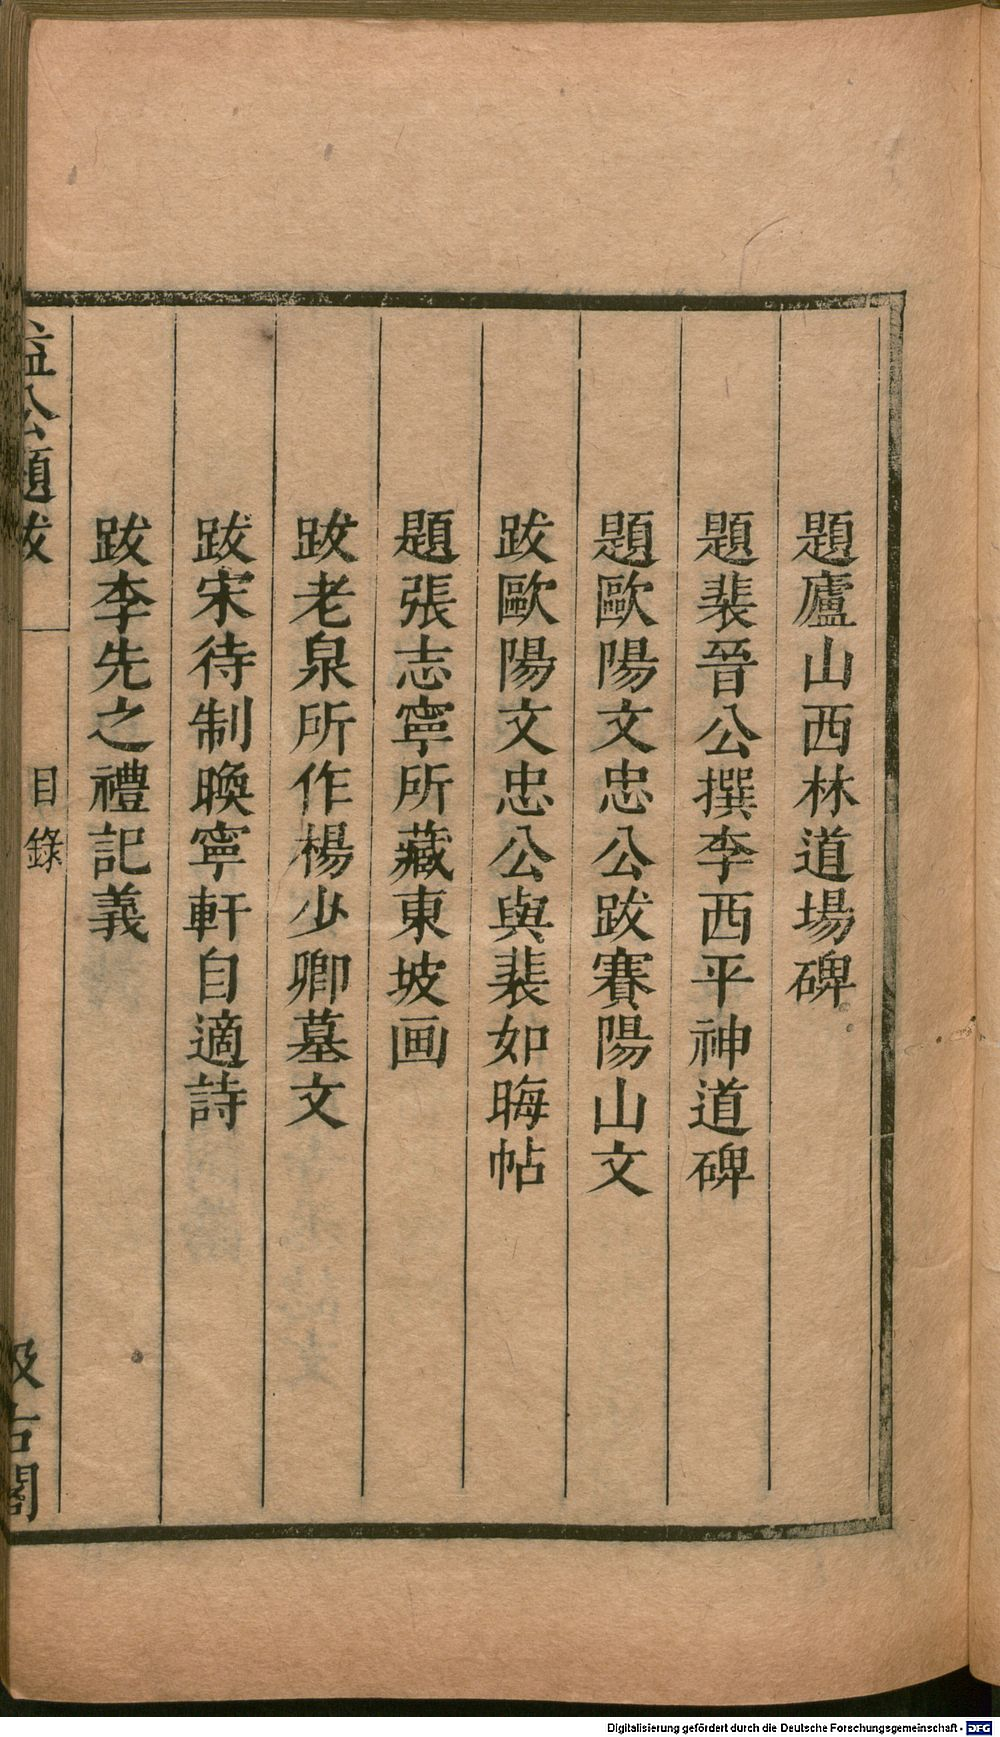 題廬山西林道場碑
題裴晉公撰李西平神道碑
題歐陽文忠公跋賽陽山文
跋歐陽文忠公與裴如晦帖
題張志寧所藏東坡画
跋老泉所作楊少卿墓文
跋宋待制㬇寧軒自適詩
跋李先之禮記義
益公題跋
目錄
汲古閣
Digitalisierung gefördert durch die Deutsche Forschungsgemeinschaft - DFG